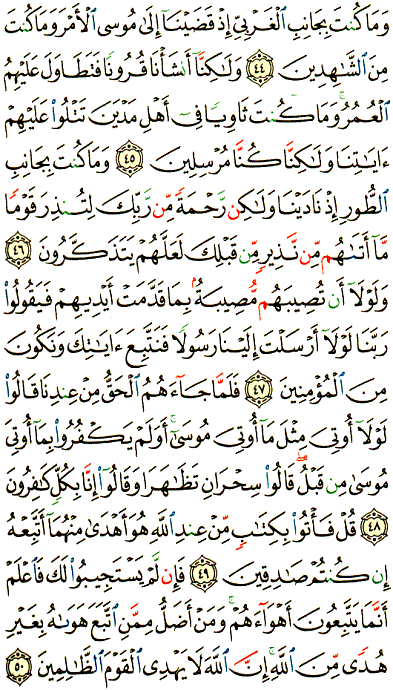 وَمَا كُنتَ بِجَانِبِ ٱلْغَرْبِىِّ إِذْ قَضَيْنَآ إِلَىٰ مُوسَى ٱلْأَمْرَ وَمَا كُنتَ
مِنَ ٱلشَّٰهِدِينَ ٤٤ وَلَٰكِنَّآ أَنشَأْنَا قُرُونًا فَتَطَاوَلَ عَلَيْهِمُ
ٱلْعُمُرُ ۚ وَمَا كُنتَ ثَاوِيًا فِىٓ أَهْلِ مَدْيَنَ تَتْلُوا۟ عَلَيْهِمْ
ءَايَٰتِنَا وَلَٰكِنَّا كُنَّا مُرْسِلِينَ ٤٥ وَمَا كُنتَ بِجَانِبِ
ٱلطُّورِ إِذْ نَادَيْنَا وَلَٰكِن رَّحْمَةً مِّن رَّبِّكَ لِتُنذِرَ قَوْمًا
مَّآ أَتَىٰهُم مِّن نَّذِيرٍ مِّن قَبْلِكَ لَعَلَّهُمْ يَتَذَكَّرُونَ ٤٦
وَلَوْلَآ أَن تُصِيبَهُم مُّصِيبَةٌۢ بِمَا قَدَّمَتْ أَيْدِيهِمْ فَيَقُولُوا۟
رَبَّنَا لَوْلَآ أَرْسَلْتَ إِلَيْنَا رَسُولًا فَنَتَّبِعَ ءَايَٰتِكَ وَنَكُونَ
مِنَ ٱلْمُؤْمِنِينَ ٤٧ فَلَمَّا جَآءَهُمُ ٱلْحَقُّ مِنْ عِندِنَا قَالُوا۟
لَوْلَآ أُوتِىَ مِثْلَ مَآ أُوتِىَ مُوسَىٰٓ ۚ أَوَلَمْ يَكْفُرُوا۟ بِمَآ أُوتِىَ
مُوسَىٰ مِن قَبْلُ ۖ قَالُوا۟ سِحْرَانِ تَظَٰهَرَا وَقَالُوٓا۟ إِنَّا بِكُلٍّ كَٰفِرُونَ
٤٨ قُلْ فَأْتُوا۟ بِكِتَٰبٍ مِّنْ عِندِ ٱللَّهِ هُوَ أَهْدَىٰ مِنْهُمَآ أَتَّبِعْهُ
إِن كُنتُمْ صَٰدِقِينَ ٤٩ فَإِن لَّمْ يَسْتَجِيبُوا۟ لَكَ فَٱعْلَمْ
أَنَّمَا يَتَّبِعُونَ أَهْوَآءَهُمْ ۚ وَمَنْ أَضَلُّ مِمَّنِ ٱتَّبَعَ هَوَىٰهُ بِغَيْرِ
هُدًى مِّنَ ٱللَّهِ ۚ إِنَّ ٱللَّهَ لَا يَهْدِى ٱلْقَوْمَ ٱلظَّٰلِمِينَ ٥٠